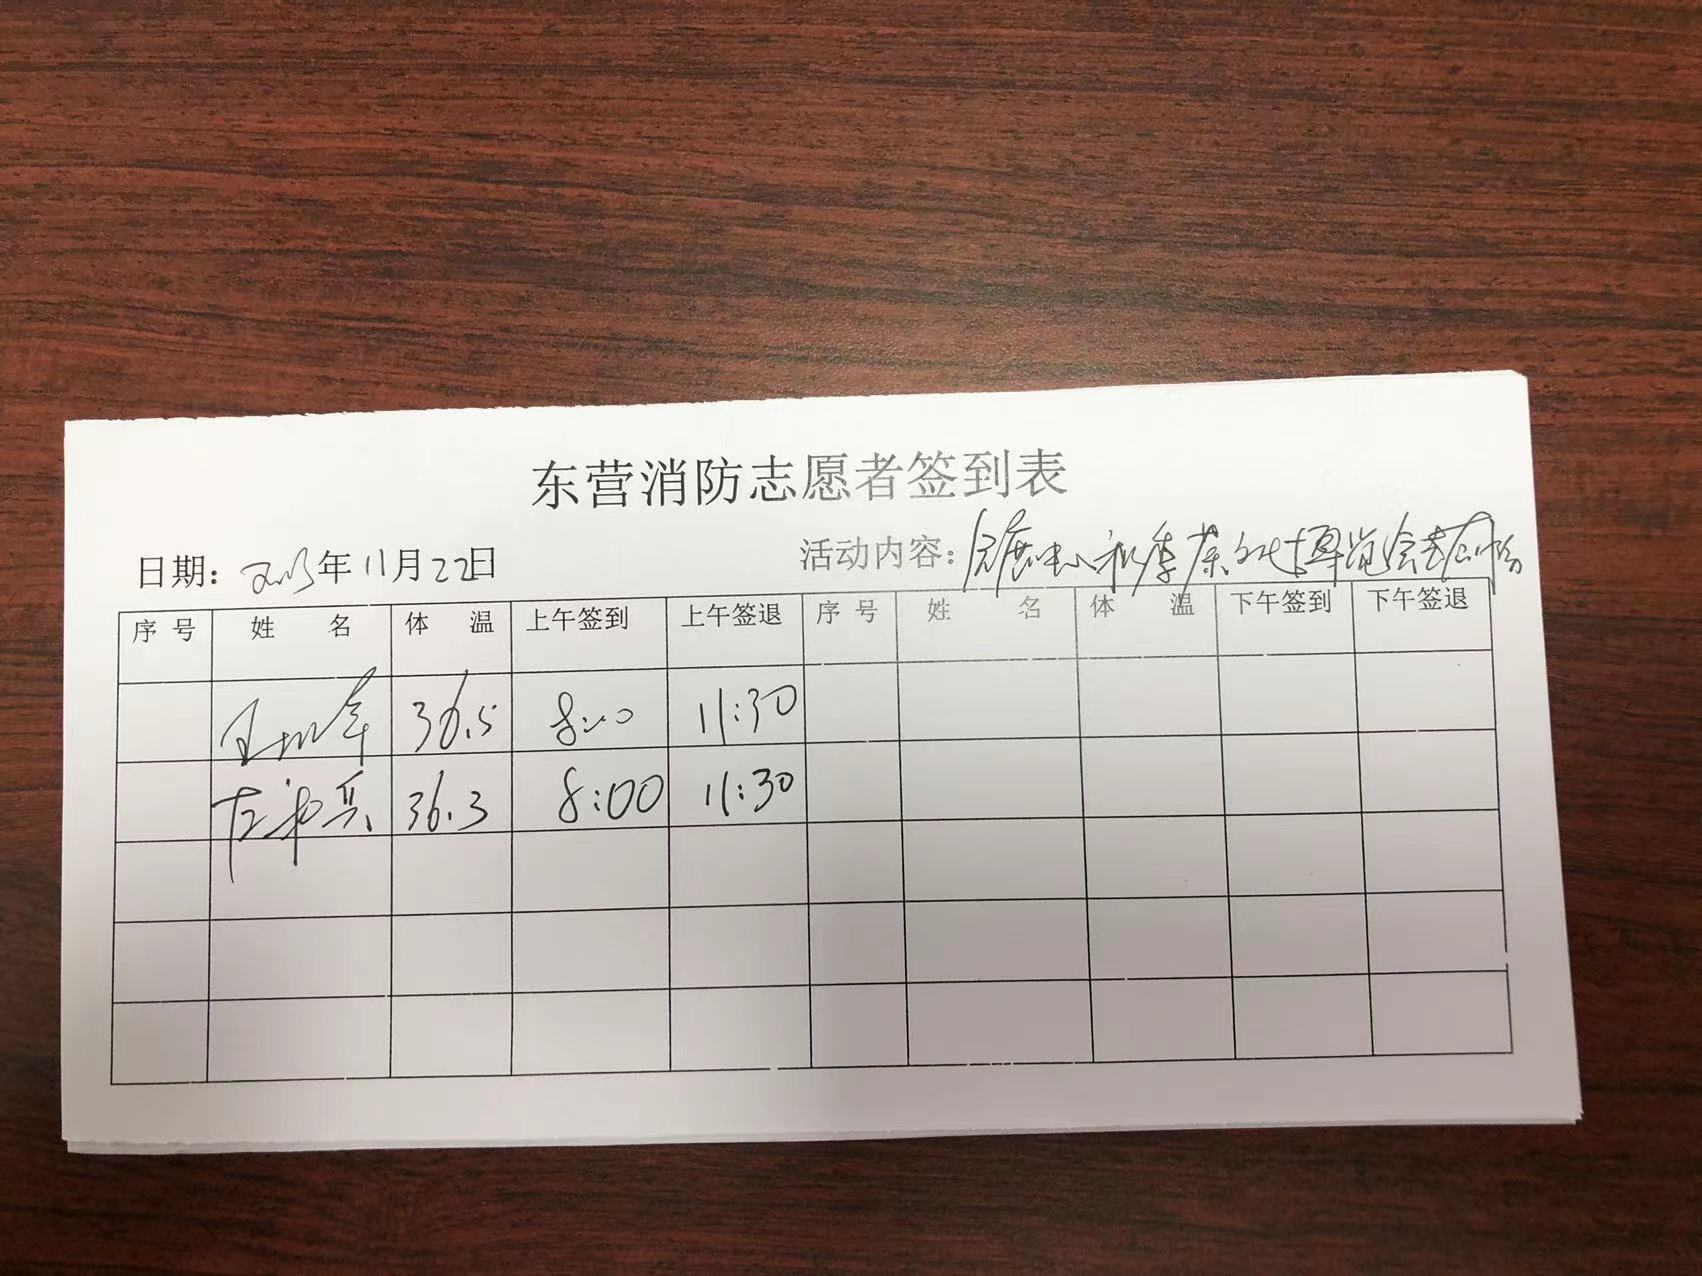 东营消防志愿者签到表
日期: 年11月22日 活动内容: 会展中心秋季茶文化博览会
序号 姓名 体温 上午签到 上午签退 序号 姓名 体温 下午签到 下午签退
36.5 8:00 11:30
36.3 8:00 11:30